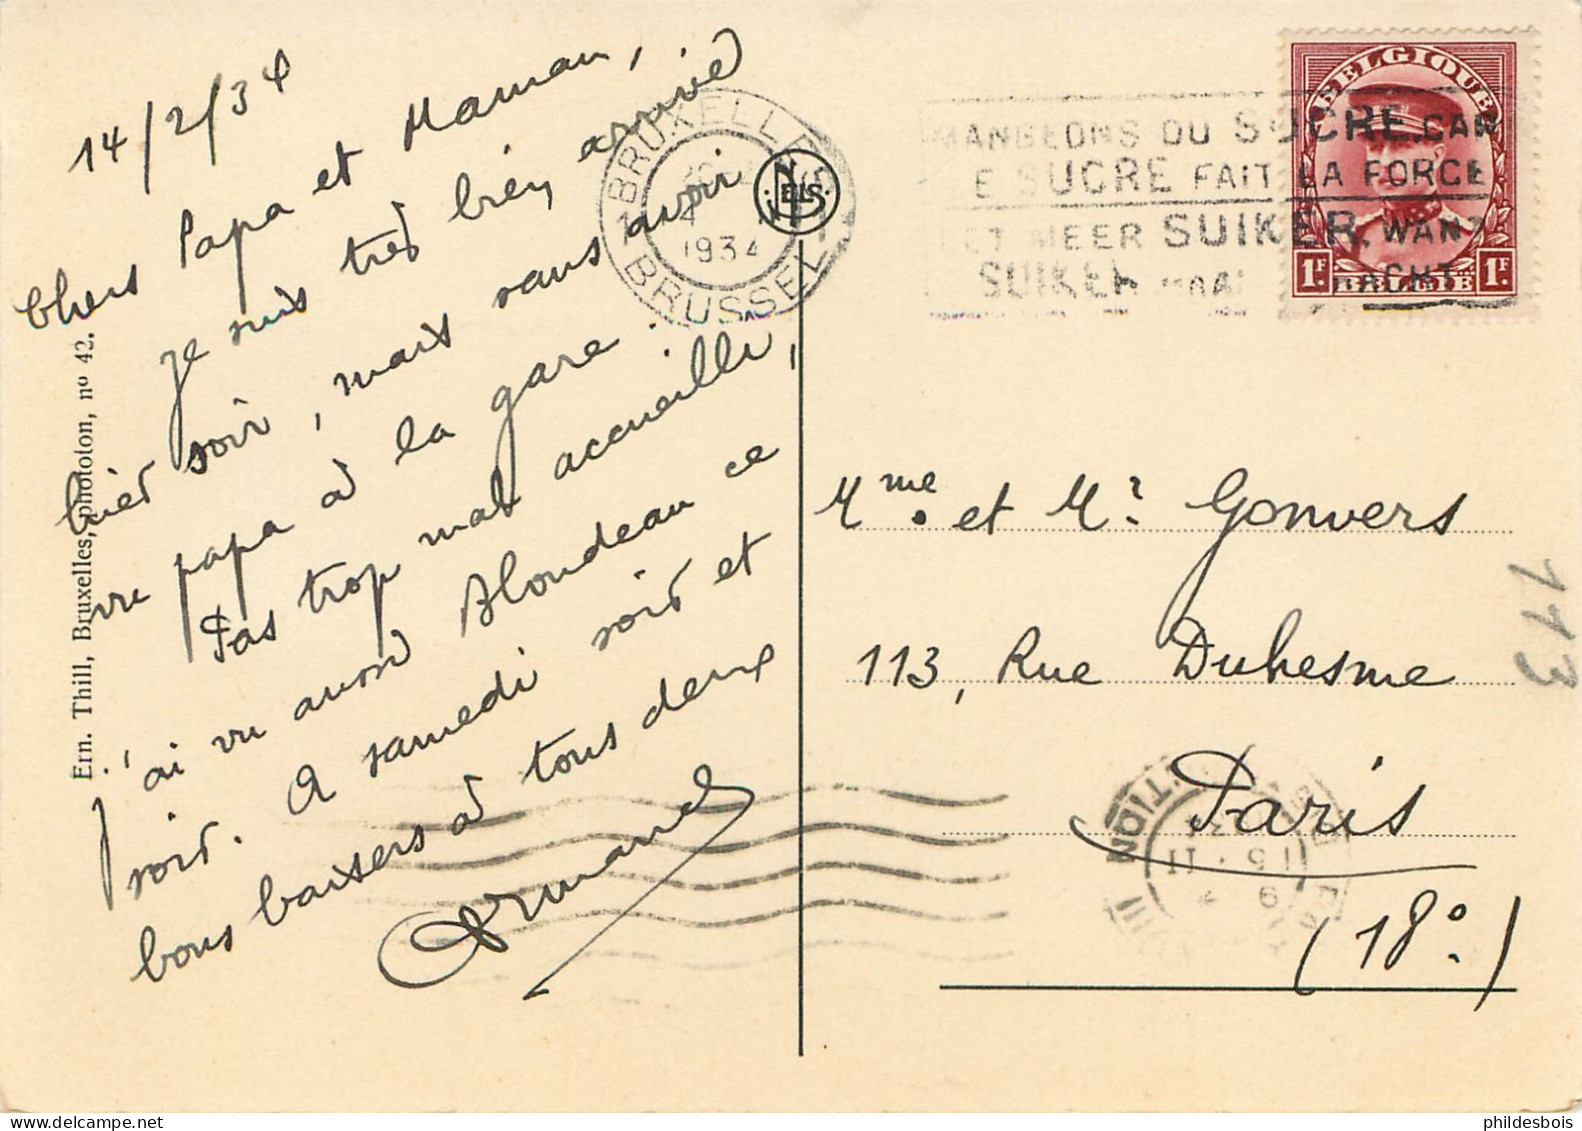 14/2/34
Chers Papa et Maman,
je suis très bien arrivé
hier soir, mais sans avoir
vu papa à la gare.
Pas trop mal accueilli,
j'ai vu aussi Blondeau ce
soir. A samedi soir et
bons baisers à tous deux
Armand
Ern. Thill, Bruxelles, phototon, nº 42.
BRUXELLES
1934
BRUSSEL
NELS
MANGEONS DU SUCRE CAR
LE SUCRE FAIT LA FORCE
EET MEER SUIKER, WANT
SUIKER
BELGIQUE
1F 1F
BELGIË
Mme. et Mr Gonvers
113, Rue Duhesme
Paris
(18º.)
113
phildesbois